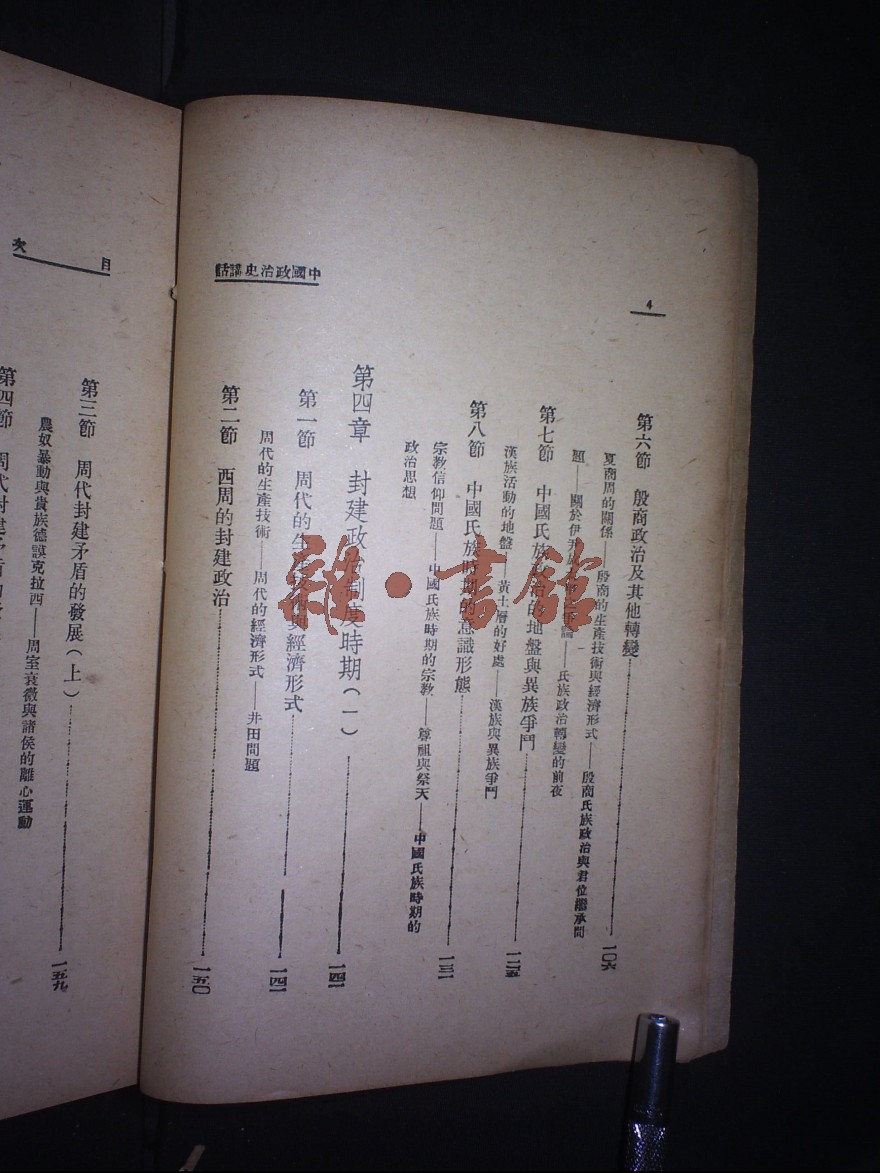 4
中國政治史講話
第六節　殷商政治及其他轉變……一〇六
夏商周的關係——殷商的生產技術與經濟形式——殷商氏族政治與君位繼承問
題——關於伊尹　　　　　　論——氏族政治轉變的前夜
第七節　中國氏族政治的地盤與異族爭鬥……一二五
漢族活動的地盤——黃土層的好處——漢族與異族爭鬥
第八節　中國氏族時期的意識形態……一三一
宗教信仰問題——中國氏族時期的宗教——尊祖與祭天——中國氏族時期的
政治思想
第四章　封建政治制度時期（一）……一四一
第一節　周代的生產技術與經濟形式……一四一
周代的生產技術——周代的經濟形式——井田問題
第二節　西周的封建政治……一五〇
目次
第三節　周代封建矛盾的發展（上）……一五九
農奴暴動與貴族德謨克拉西——周室衰微與諸侯的離心運動
第四節　周代封建矛盾的發
雜·書館